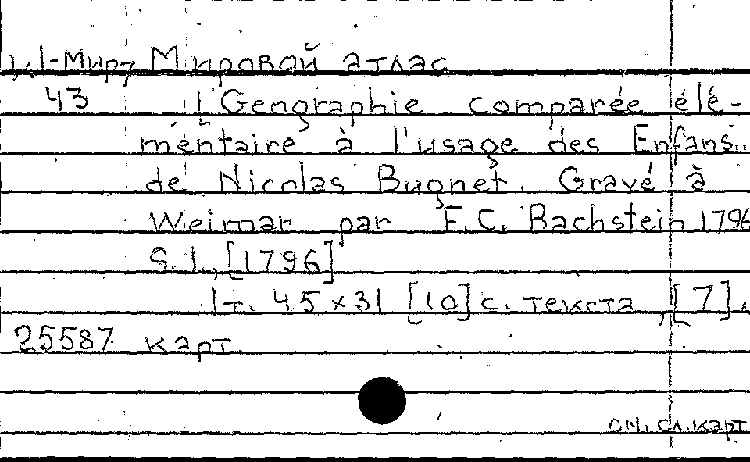 И1-Мир7 Мировой атлас
43 [Geographie comparée élé-
mentaire à l'usage des Enfans..
de Nicolas Bugnet. Gravé à
Weimar par F.C. Bachstein 1796
S.l., [1796]
1т. 45×31 [10]с. текста, [7].
25587 карт.
см. сл. карт